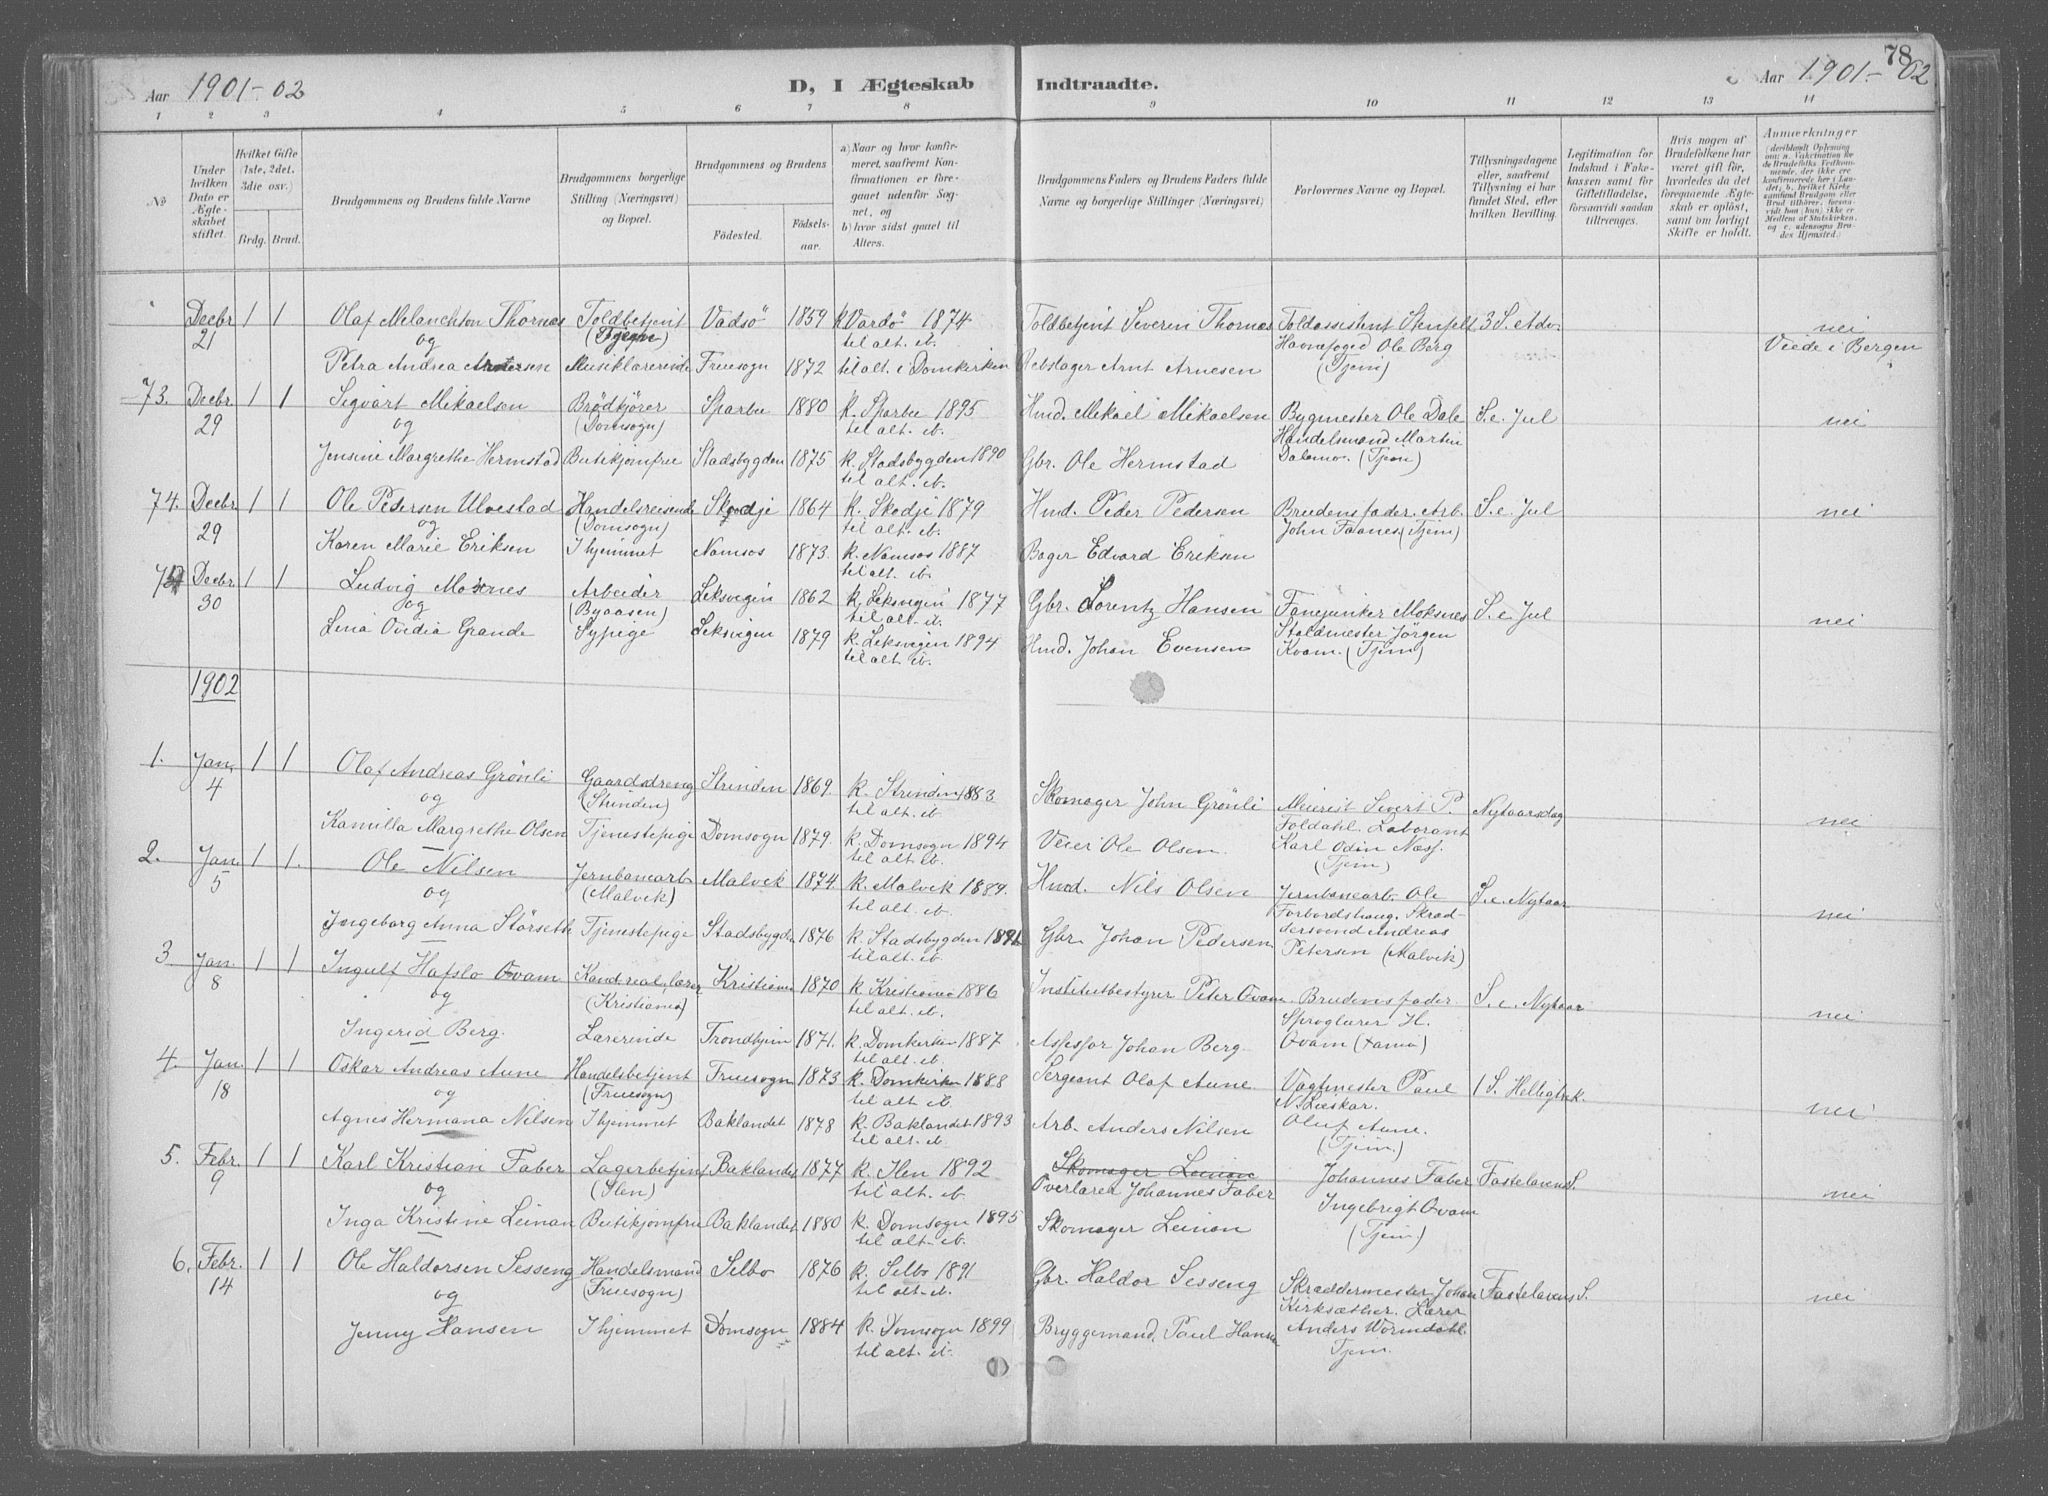 Aar 1901-02
D, I Ægteskab Indtraadte.
78
Aar 1901-02
1 2 3 4 5 6 7 8 9 10 11 12 13 14
No
Under hvilken Dato er Ægteskabet stiftet.
Hvilket Gifte (1ste, 2det, 3die osv.)
Brdg. Brud.
Brudgommens og Brudens fulde Navne
Brudgommens borgerlige Stilling (Næringsvei) og Bopæl.
Brudgommens og Brudens
Födested. Födselsaar.
a) Naar og hvor konfirmeret, saafremt Konfirmationen er foregaaet udenfor Sognet, og
b) hvor sidst gaaet til Alters.
Brudgommens Faders og Brudens Faders fulde Navne og borgerlige Stillinger (Næringsvei)
Forlovernes Navne og Bopæl.
Tillysningsdagene eller, saafremt Tillysning ei har fundet Sted, efter hvilken Bevilling.
Legitimation for Indskud i Fakekassen samt for Giftetilladelse, forsaavidt saadan tiltrænges.
Hvis nogen af Brudefolkene har været gift för, hvorledes da det foregaaende Ægteskab er oplöst, samt om lovligt Skifte er holdt.
Anmerkninger
Decbr 21 1 1 Olaf Melanchton Thornæs Toldbetjent Vadsö 1859 k. Vardö 1874 Toldbetjent Severin Thornæs Toldassistent Stenfelt 3 S. Adv. nei
og til alt. ib. Havnefoged Ole Berg Viede i Bergen
Petra Andrea Arntsen Musiklærerinde Fruesogn 1872 til alt. i Domkirken Rebslager Arnt Arnesen (Tjem)
73. Decbr. 29 1 1 Sigvart Mikaelsen Brödkjörer Sparbu 1880 k. Sparbu 1895 Hmd. Mikael Mikaelsen Bygmester Ole Dale S. e. Jul nei
og (Domsogn) til alt. ib. Handelsmand Martin
Jensine Margrethe Hermstad Butikjomfru Stadsbygden 1875 k. Stadsbygden 1890 Gbr. Ole Hermstad Dalemo. (Tjem)
til alt. ib.
74. Decbr. 29 1 1 Ole Petersen Ulvestad Handelsreisende Skodje 1864 k. Skodje 1879 Hmd. Peder Pedersen Brudens fader. Arb. S. e. Jul nei
og (Domsogn) til alt. ib. John Faanes (Tjem)
Karen Marie Eriksen I hjemmet Namsos 1873. k. Namsos 1887 Bager Edvard Eriksen
til alt. ib.
Decbr. 30 1 1 Ludvig Moksnes Arbeider Leksvigen 1862 k. Leksvigen 1877 Gbr. Lorentz Hansen Fanejunker Moksnes S. e. Jul nei
og (Byaasen) til alt. ib. Staldmester Jörgen
Lina Ovidia Grande Sypige Leksvigen 1879 k. Leksvigen 1894 Hmd. Johan Evensen Kvam. (Tjem)
til alt. ib.
1902
1. Jan. 4 1 1 Olaf Andreas Grönli Gaardsdreng Strinden 1869. k. Strinden 1883 Skomager John Grönli Meierist Sivert P. Nytaarsdag nei
og (Strinden) til alt. ib. Foldahl. Laborant
Kamilla Margrethe Olsen Tjenestepige Domsogn 1879. k. Domsogn 1894 Veier Ole Olsen. Karl Odin Næss.
til alt. ib. (Tjem)
2. Jan. 5 1 1. Ole Nilsen Jernbanearb. Malvik 1874 k. Malvik 1889. Hmd. Nils Olsen Jernbanearb. Ole S. e. Nytaar nei
og (Malvik) til alt. ib. Forbordshaug. Skræd-
Ingeborg Anna Störseth Tjenestepige Stadsbygden 1876 k. Stadsbygden 1891 Gbr. Johan Pedersen dersvend Andreas
til alt. ib. Petersen (Malvik)
3 Jan. 8 1 1 Ingulf Hafslo Qvam Kand. real, lærer Kristiania 1870 k. Kristiania 1886 Institutbestyrer Peter Qvam Brudens fader. S. e. Nytaar nei
og (Kristiania) til alt. ib. Sproglærer H.
Ingerid Berg. Lærerinde Trondhjem 1871. k. Domkirken 1887 Assessor Johan Berg. Qvam (Hamar)
til alt. ib.
4. Jan. 18 1 1 Oskar Andreas Aune Handelsbetjent Fruesogn 1873 k. Domkirken 1888 Sergeant Olaf Aune Vagtmester Paul 1 S. Helligtrek. nei
og (Fruesogn) til alt. ib.
Agnes Hermana Nilsen I hjemmet Baklandet 1878 k. Baklandet 1893 Arb. Anders Nilsen Oluf Aune.
til alt. ib. (Tjem.)
5. Febr. 9 1 1 Karl Kristian Faber Lagerbetjent Baklandet 1877 k. Ilen 1892 Skomager Leinan Johannes Faber Fastelavens S. nei
og (Ilen) til alt. ib. Overlærer Johannes Faber
Inga Kristine Leinan Butikjomfru Baklandet 1880 k. Domsogn 1895 Skomager Leinan Ingebrigt Qvam
til alt. ib. (Tjem.)
6. Febr. 14 1 1 Ole Haldorsen Sesseng Handelsmand Selbo 1876 k. Selbo 1891 Gbr. Haldor Sesseng Skræddermester Johan Fastelavens S. nei
og (Fruesogn) til alt. ib. Kirksæther. Lærer
Jenny Hansen I hjemmet Domsogn 1884 k. Domsogn 1899 Bryggemand. Paul Hansen Anders Wormdahl.
til alt. ib. Tjem.